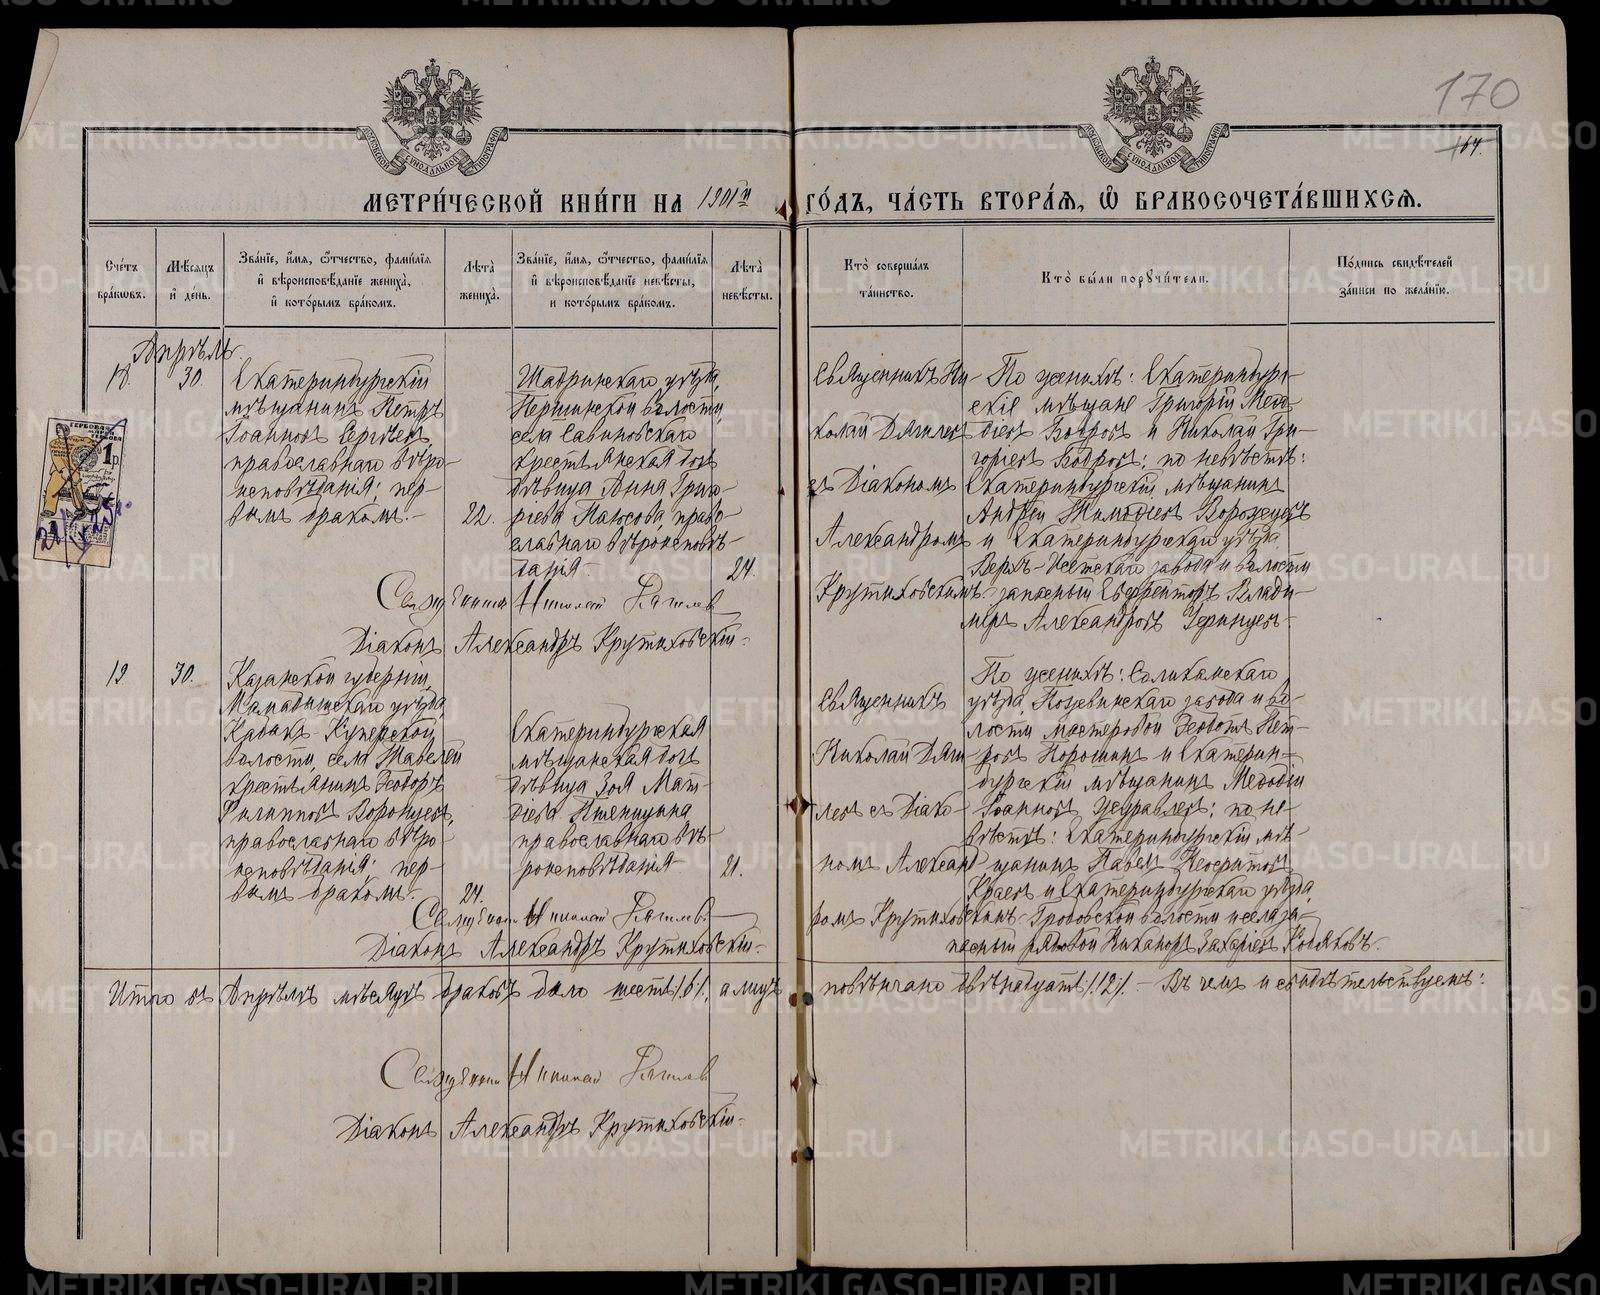 170
164.
МЕТРИ́ЧЕСКОЙ КНИ́ГИ НА 1901й ГО́ДЪ, ЧА́СТЬ ВТОРА́Я, Ѡ҆ БРАКОСОЧЕТА́ВШИХСЯ.
Сче́тъ бра́кѡвъ.
Мѣ́сяцъ и҆ де́нь.
Зва́нїе, и҆́мя, ѻ҆́тчество, фами́лїя и҆ вѣроисповѣ́данїе жениха̀, и҆ кото́рымъ бра́комъ.
Лѣ́та жениха̀.
Зва́нїе, и҆́мя, ѻ҆́тчество, фами́лїя и҆ вѣроисповѣ́данїе невѣ́сты, и҆ кото́рымъ бра́комъ.
Лѣ́та невѣ́сты.
Кто̀ соверша́лъ та́инство.
Кто̀ бы́ли порꙋчи́тели.
По́дпись свидѣ́телей за́писи по жела́нїю.
Апрѣль.
18.
30.
Екатеринбургскій
мѣщанинъ Петръ
Іоанновъ Сергѣевъ,
православнаго вѣро-
исповѣданія; пер-
вымъ бракомъ.-
22.
Шадринскаго уѣзда,
Першинской волости,
села Савиновскаго
крестьянская дочь
дѣвица Анна Григо-
рьева Паюсова, право-
славнаго вѣроисповѣ-
данія.-
24.
Священникъ Николай
Дягилевъ
съ Діакономъ
Александромъ
Крутиховскимъ.
По женихѣ: Екатеринбург-
скіе мѣщане Григорій Меѳо-
діевъ Бобровъ и Николай Гри-
горьевъ Бобровъ; по невѣстѣ:
Екатеринбургскій мѣщанинъ
Андрей Тимоѳеевъ
и Екатеринбургскаго уѣзда,
Верхъ-Исетскаго завода и волости
запасный Ефрейторъ Влади-
міръ Александровъ
Священникъ Николай Дягилевъ
Діаконъ Александръ Крутиховскій.-
19.
30.
Казанской губерніи,
Мамадышскаго уѣзда,
Кабыкъ-Куперской
волости, села
крестьянинъ Ѳеодоръ
Филипповъ Воронцовъ,
православнаго вѣро-
исповѣданія; пер-
вымъ бракомъ.-
24.
Екатеринбургская
мѣщанская дочь
дѣвица Зоя Мат-
ѳіева Пшеницына,
православнаго вѣ-
роисповѣданія.-
21.
Священникъ
Николай Дяги-
левъ съ Діако-
номъ Александ-
ромъ Крутиховскимъ.
По женихѣ: Соликамскаго
уѣзда, Пожевинскаго завода и во-
лости мастеровой Ѳеодотъ Пет-
ровъ Порошинъ и Екатерин-
бургскій мѣщанинъ Меѳодій
Іоанновъ Журавлевъ; по не-
вѣстѣ: Екатеринбургскій мѣ-
щанинъ Павелъ Неофитовъ
Краевъ и Екатеринбургскаго уѣзда,
Гробовской волости и села за-
пасный рядовой Никаноръ Захаріевъ
Священникъ Николай Дягилевъ
Діаконъ Александръ Крутиховскій.-
Итого въ Апрѣлѣ мѣсяцѣ браковъ было шесть /6/, а лицъ повѣнчано двѣнадцать /12/. - Въ чемъ и свидѣтельствуемъ:
Священникъ Николай Дягилевъ
Діаконъ Александръ Крутиховскій.-
ГЕРБОВАЯ МАРКА
1р
METRIKI.GASO-URAL.RU